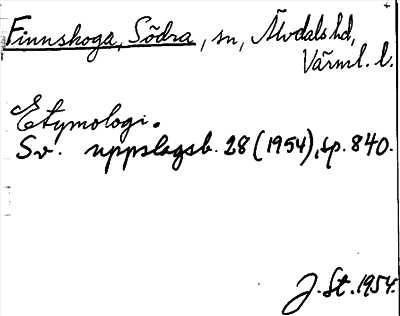 Finnskoga, Södra, sn, Älvdals hd,
Värml. l.
Etymologi.
Sv. uppslagsb. 28 (1954), sp. 840.
J. St. 1954.